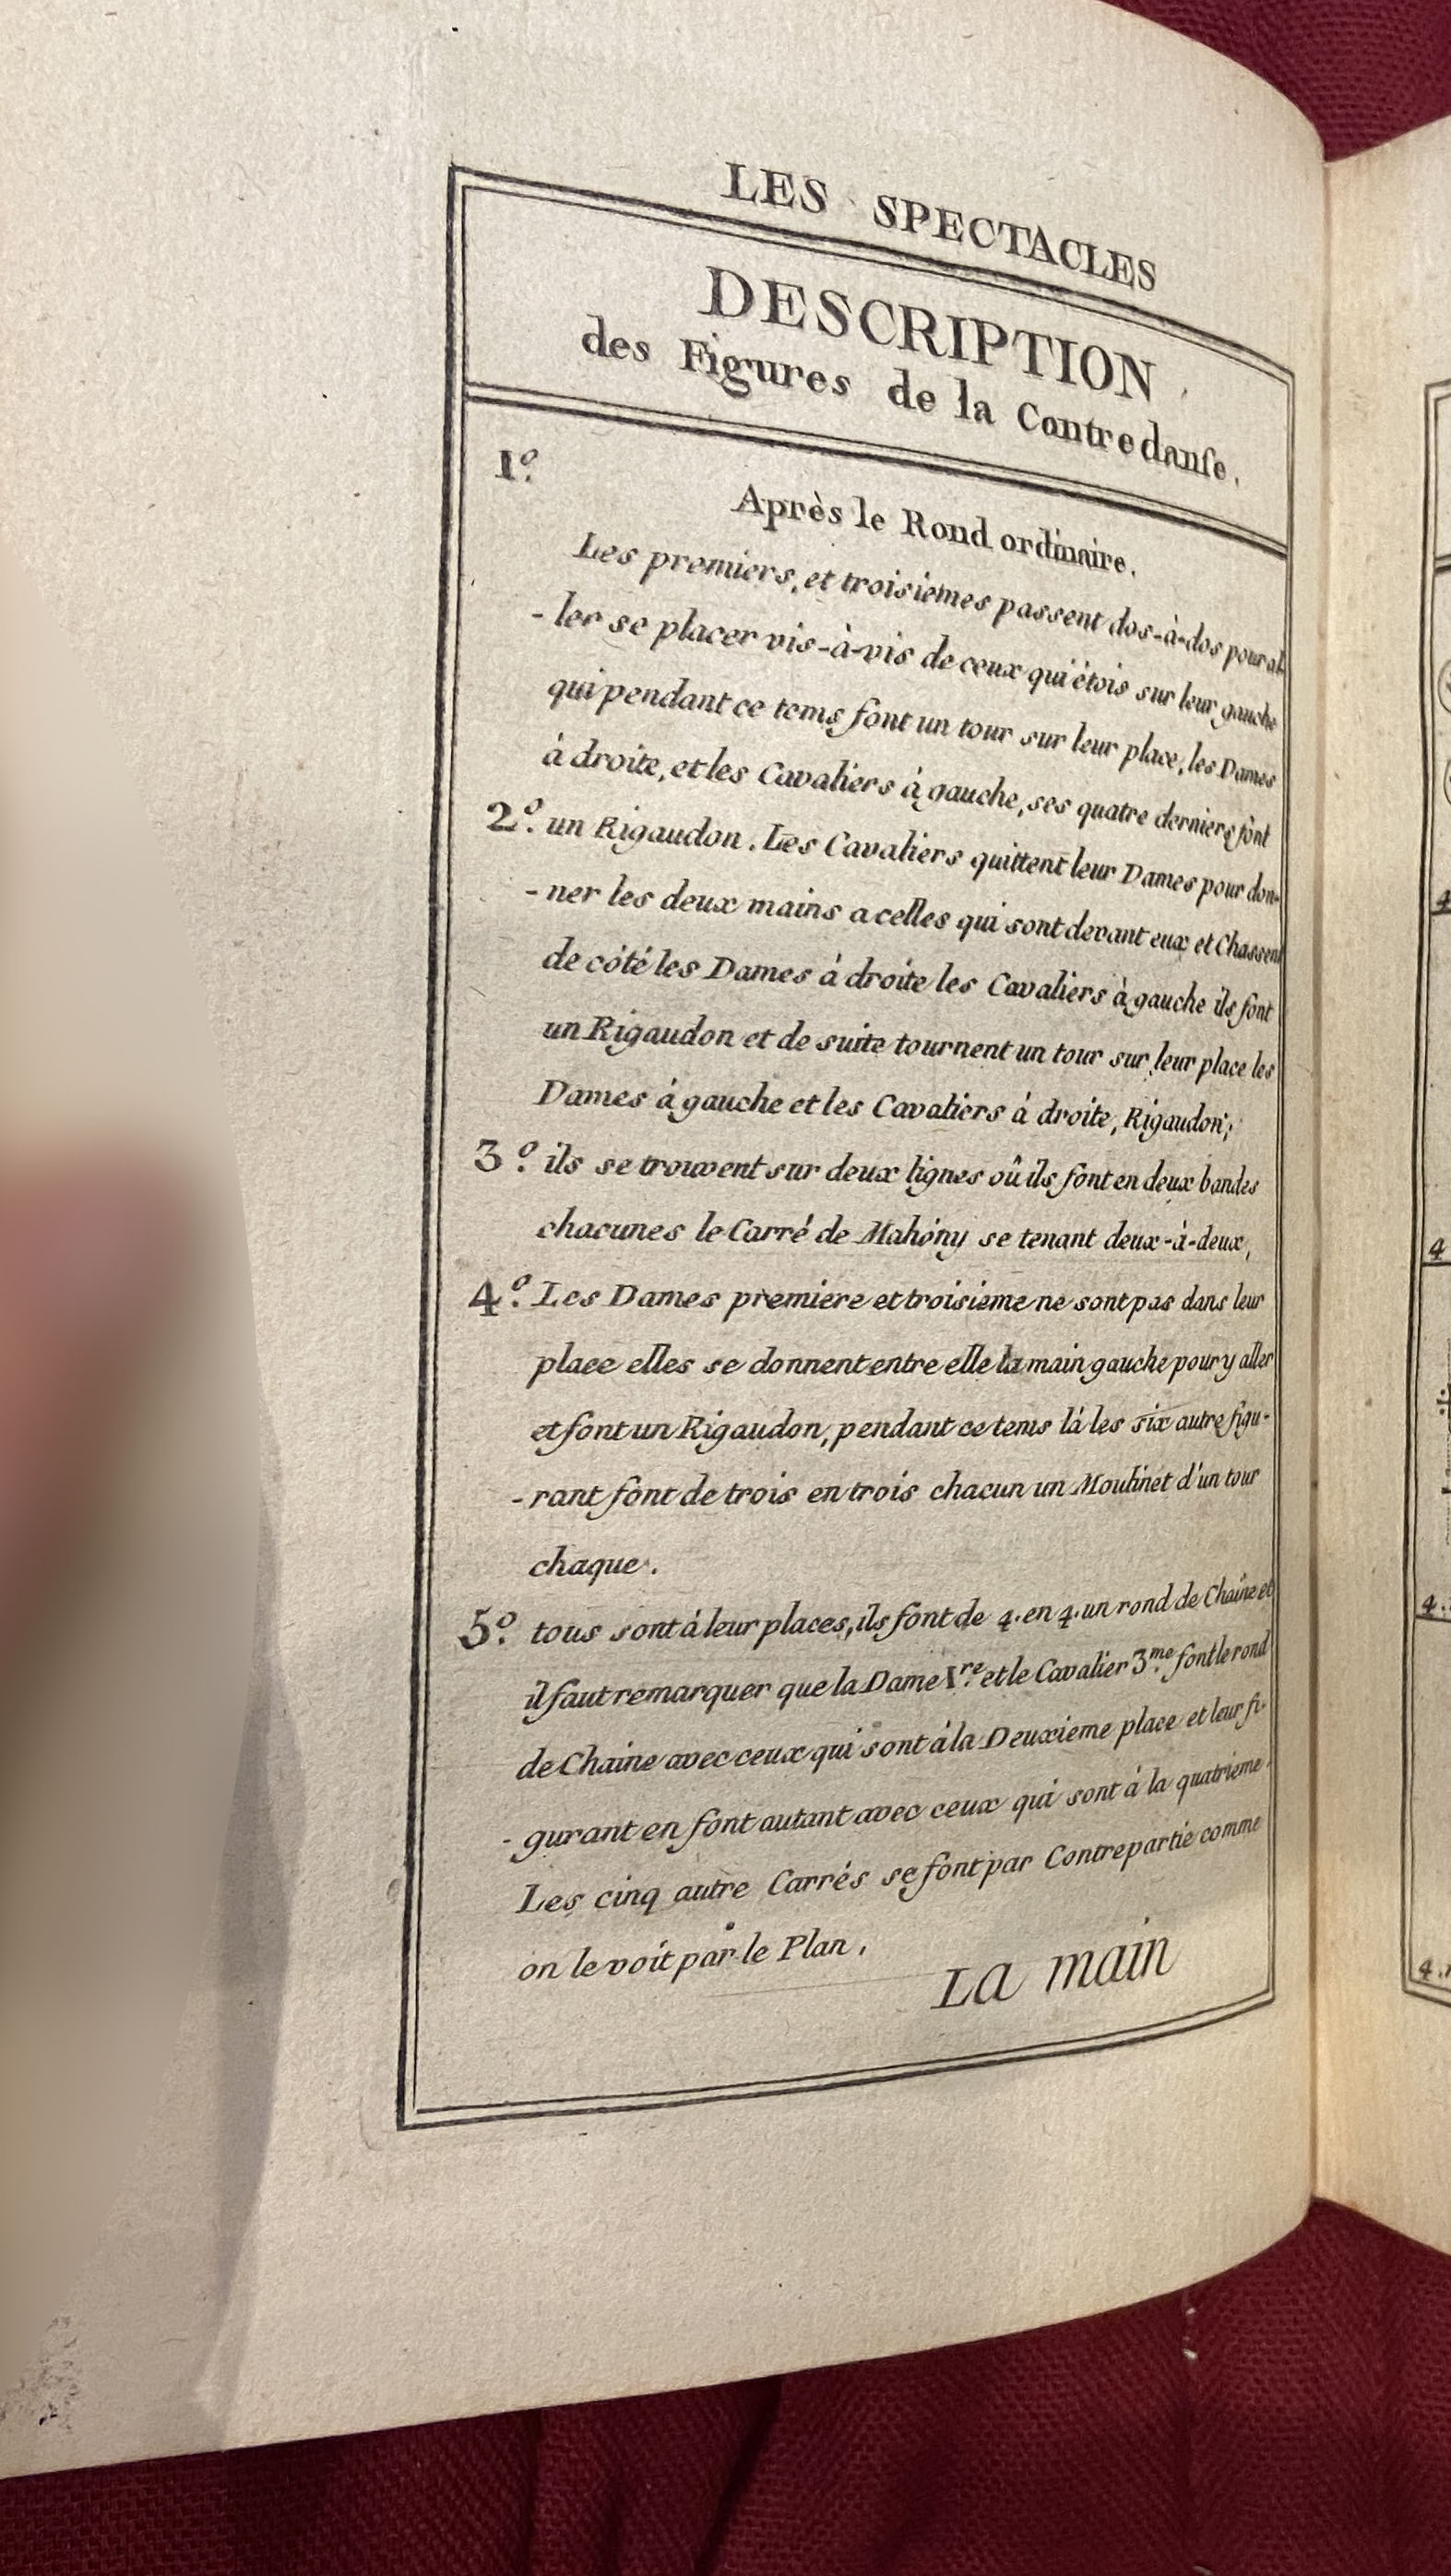 LES SPECTACLES
DESCRIPTION
des Figures de la Contredanſe.
1.º
Après le Rond ordinaire.
Les premiers, et troisiemes passent dos-à-dos pour al-
-ler se placer vis-à-vis de ceux qui étois sur leur gauche
qui pendant ce tems font un tour sur leur place, les Dames
à droite, et les Cavaliers à gauche, ses quatre derniers font
2.º un Rigaudon. Les Cavaliers quittent leur Dames pour don-
-ner les deux mains a celles qui sont devant eux et Chassent
de côté les Dames à droite les Cavaliers à gauche ils font
un Rigaudon et de suite tournent un tour sur leur place les
Dames à gauche et les Cavaliers à droite, Rigaudon;
3.º ils se trouvent sur deux lignes où ils font en deux bandes
chacunes le Carré de Mahóny se tenant deux-à-deux,
4.º Les Dames premiere et troisieme ne sont pas dans leur
place elles se donnent entre elle la main gauche pour y aller
et font un Rigaudon, pendant ce tems là les six autre figu-
-rant font de trois en trois chacun un Moulinet d'un tour
chaque.
5.º tous sont à leur places, ils font de 4. en 4. un rond de Chaîne et
il faut remarquer que la Dame 1.re et le Cavalier 3.me font le rond
de Chaine avec ceux qui sont à la Deuxieme place et leur fi-
-gurant en font autant avec ceux qui sont à la quatrieme.
Les cinq autre Carrés se font par Contrepartie comme
on le voit par le Plan.
La main
4
4
4.
4.